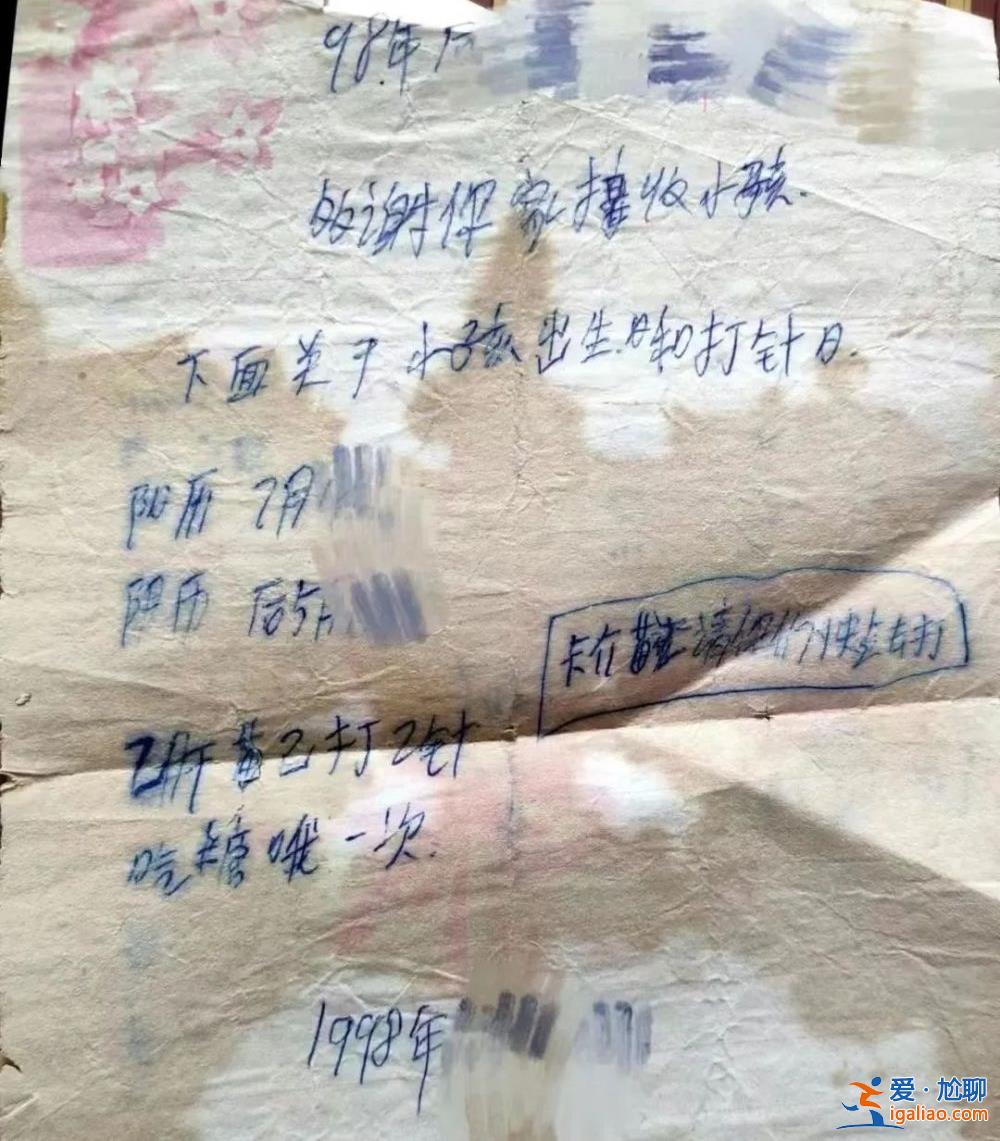 98年后
谢你家接收小孩.
下面关于小孩出生日和打针日.
阳历 7月
阴历 后5月
卡介苗 请你们 打
乙肝苗已打2针
吃糖 一次.
1998年
爱·尬聊
igaliao.com